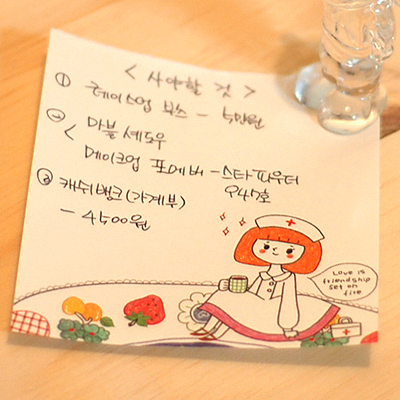 < 사야할 것 >
① 레이스업 부츠 - 5만원
② 마블 섀도우
< 메이크업 포에버 - 스타파우더
945호
③ 캐쉬뱅크(가계부)
- 4500원
Love is
friendship
set on
fire